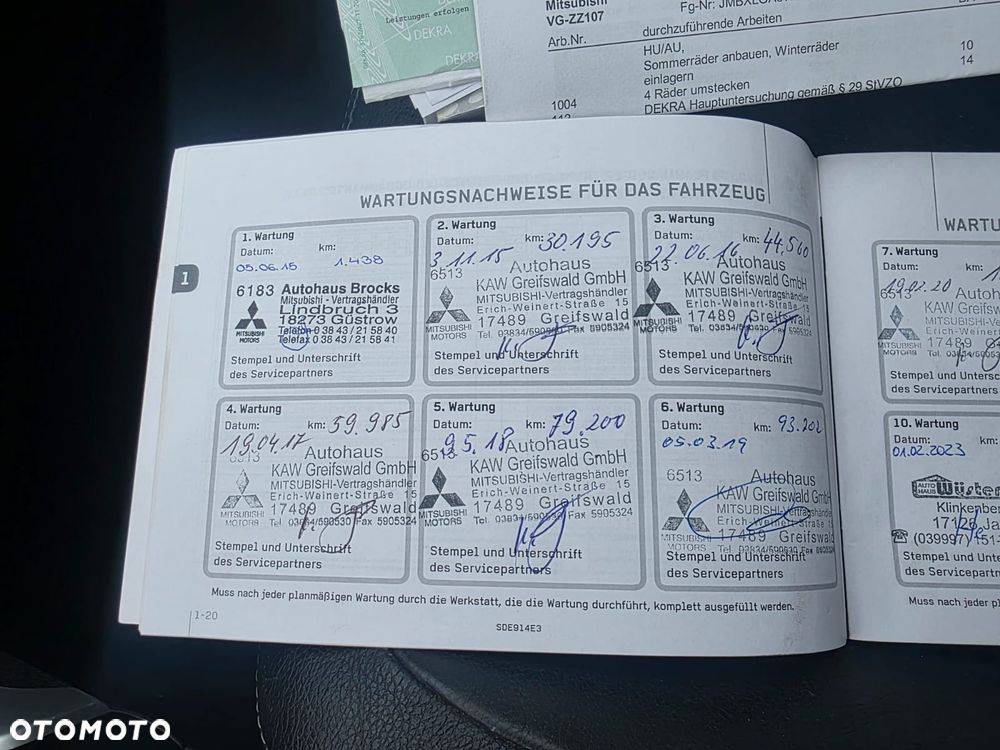 Leistungen erfolgen
DEKRA
DEKRA
Mitsubishi
VG-ZZ107
Fg-Nr:
durchzuführende Arbeiten
Arb.Nr.
HU/AU,
Sommerräder anbauen, Winterräder
10
einlagern
14
4 Räder umstecken
1004
DEKRA Hauptuntersuchung gemäß § 29 StVZO
WARTUNGSNACHWEISE FÜR DAS FAHRZEUG
1
1. Wartung
Datum:
km:
05.06.15
1.438
6183 Autohaus Brocks
Mitsubishi - Vertragshändler
Lindbruch 3
18273 Güstrow
Telefon 0 38 43 / 21 58 40
Telefax 0 38 43 / 21 58 41
MITSUBISHI
MOTORS
Stempel und Unterschrift
des Servicepartners
2. Wartung
Datum:
km: 30.195
3.11.15
6513
Autohaus
KAW Greifswald GmbH
MITSUBISHI-Vertragshändler
Erich-Weinert-Straße 15
17489 Greifswald
Tel. 03834/590530 Fax 5905324
MITSUBISHI
MOTORS
Stempel und Unterschrift
des Servicepartners
3. Wartung
Datum:
km: 44.560
22.06.16
6513
Autohaus
KAW Greifswald GmbH
MITSUBISHI-Vertragshändler
Erich-Weinert-Straße 15
17489 Greifswald
Tel. 03834/590530 Fax 5905324
MITSUBISHI
MOTORS
Stempel und Unterschrift
des Servicepartners
4. Wartung
Datum:
km: 59.985
19.04.17
6513
Autohaus
KAW Greifswald GmbH
MITSUBISHI-Vertragshändler
Erich-Weinert-Straße 15
17489 Greifswald
Tel. 03834/590530 Fax 5905324
MITSUBISHI
MOTORS
Stempel und Unterschrift
des Servicepartners
5. Wartung
Datum:
km: 79.200
9.5.18
6513
Autohaus
KAW Greifswald GmbH
MITSUBISHI-Vertragshändler
Erich-Weinert-Straße 15
17489 Greifswald
Tel. 03834/590530 Fax 5905324
MITSUBISHI
MOTORS
Stempel und Unterschrift
des Servicepartners
6. Wartung
Datum:
km: 93.202
05.03.19
6513
Autohaus
KAW Greifswald GmbH
MITSUBISHI-Vertragshändler
Erich-Weinert-Straße 15
17489 Greifswald
Tel. 03834/590530 Fax 5905324
MITSUBISHI
MOTORS
Stempel und Unterschrift
des Servicepartners
Muss nach jeder planmäßigen Wartung durch die Werkstatt, die die Wartung durchführt, komplett ausgefüllt werden.
1-20
SDE914E3
7. Wartung
Datum:
km:
6513
MITSUBISHI
MOTORS
Stempel und Unterschrift
des Servicepartners
10. Wartung
Datum:
km:
01.02.2023
AUTO
HAUS
(039997)
Stempel und Unterschrift
des Servicepartners
Muss nach jeder
OTOMOTO